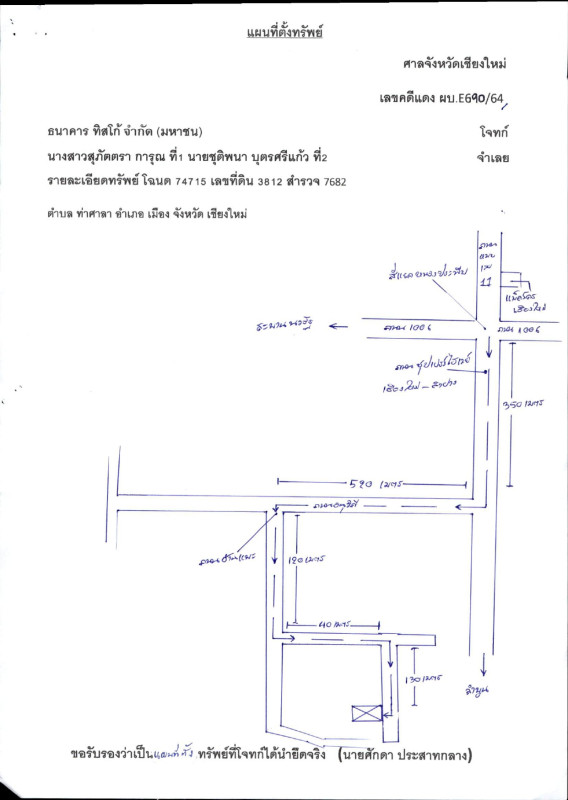 แผนที่ตั้งทรัพย์
ศาลจังหวัดเชียงใหม่
เลขคดีแดง ผบ.E690/64
ธนาคาร ทิสโก้ จำกัด (มหาชน) โจทก์
นางสาวสุภัตตรา การุณ ที่1 นายชุติพนา บุตรศรีแก้ว ที่2 จำเลย
รายละเอียดทรัพย์ โฉนด 74715 เลขที่ดิน 3812 สำรวจ 7682
ตำบล ท่าศาลา อำเภอ เมือง จังหวัด เชียงใหม่
ถนน
11
สี่แยกหนองประทีป
แม็คโคร
เชียงใหม่
สะพานนวรัฐ
ถนน 1006
ถนน 1006
ถนน ซุปเปอร์ไฮเวย์
เชียงใหม่ - ลำปาง
350 เมตร
590 เมตร
120 เมตร
40 เมตร
130 เมตร
ลำพูน
ขอรับรองว่าเป็นแผนที่ตั้ง ทรัพย์ที่โจทก์ได้นำยึดจริง (นายศักดา ประสาทกลาง)